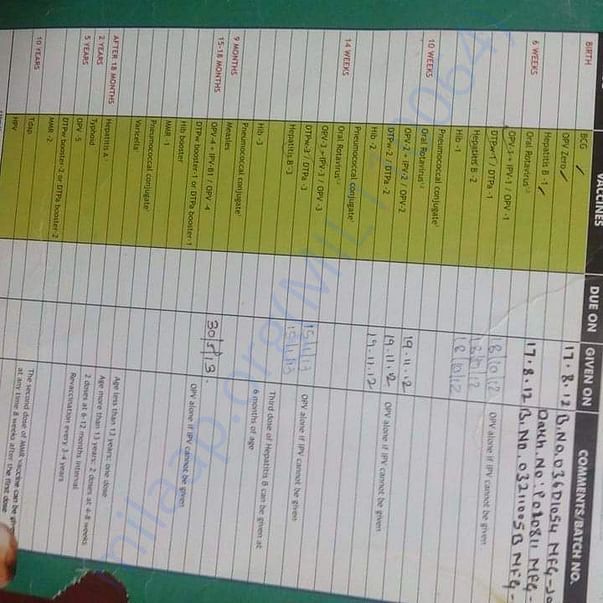 VACCINES DUE ON GIVEN ON COMMENTS/BATCH NO.
BIRTH BCG ✓ 17.8.12 B.NO.036D1054 MFG-
OPV Zero ✓
Hepatitis B -1 ✓ 17.8.12 B.No. 0321005B MFG-
6 WEEKS Oral Rotavirus
DTPw-1 / DTPa -1 8/10/12
OPV-1 + IPV-1 / OPV -1 OPV alone if IPV cannot be given
Hepatitis B -2 8/10/12
Hib -1 8/10/12
Pneumococcal conjugate
10 WEEKS Oral Rotavirus
OPV-2 + IPV-2 / OPV-2 19.11.12 OPV alone if IPV cannot be given
DTPw-2 / DTPa -2 19.11.12
Hib -2 19.11.12
Pneumococcal conjugate
14 WEEKS Oral Rotavirus
OPV 3 + IPV 3 / OPV -3 OPV alone if IPV cannot be given
DTPw-3 / DTPa -3
Hepatitis B -3 Third dose of Hepatitis B can be given at
6 months of age
Hib -3
Pneumococcal conjugate
9 MONTHS Measles 30/5/13.
15-18 MONTHS OPV-4 + IPV-B1 / OPV -4 OPV alone if IPV cannot be given
DTPw booster-1 or DTPa booster-1
Hib booster
MMR -1
Pneumococcal conjugate
Varicella Age less than 13 years: one dose
Age more than 13 years: 2 doses at 4-8 weeks
AFTER 18 MONTHS Hepatitis A 2 doses at 6-12 months interval
2 YEARS Typhoid Revaccination every 3-4 years
5 YEARS OPV -5
DTPw booster-2 or DTPa booster-2
MMR -2 The second dose of MMR vaccine can be
at any time 8 weeks after the first dose
10 YEARS Tdap
HPV
milaap.org